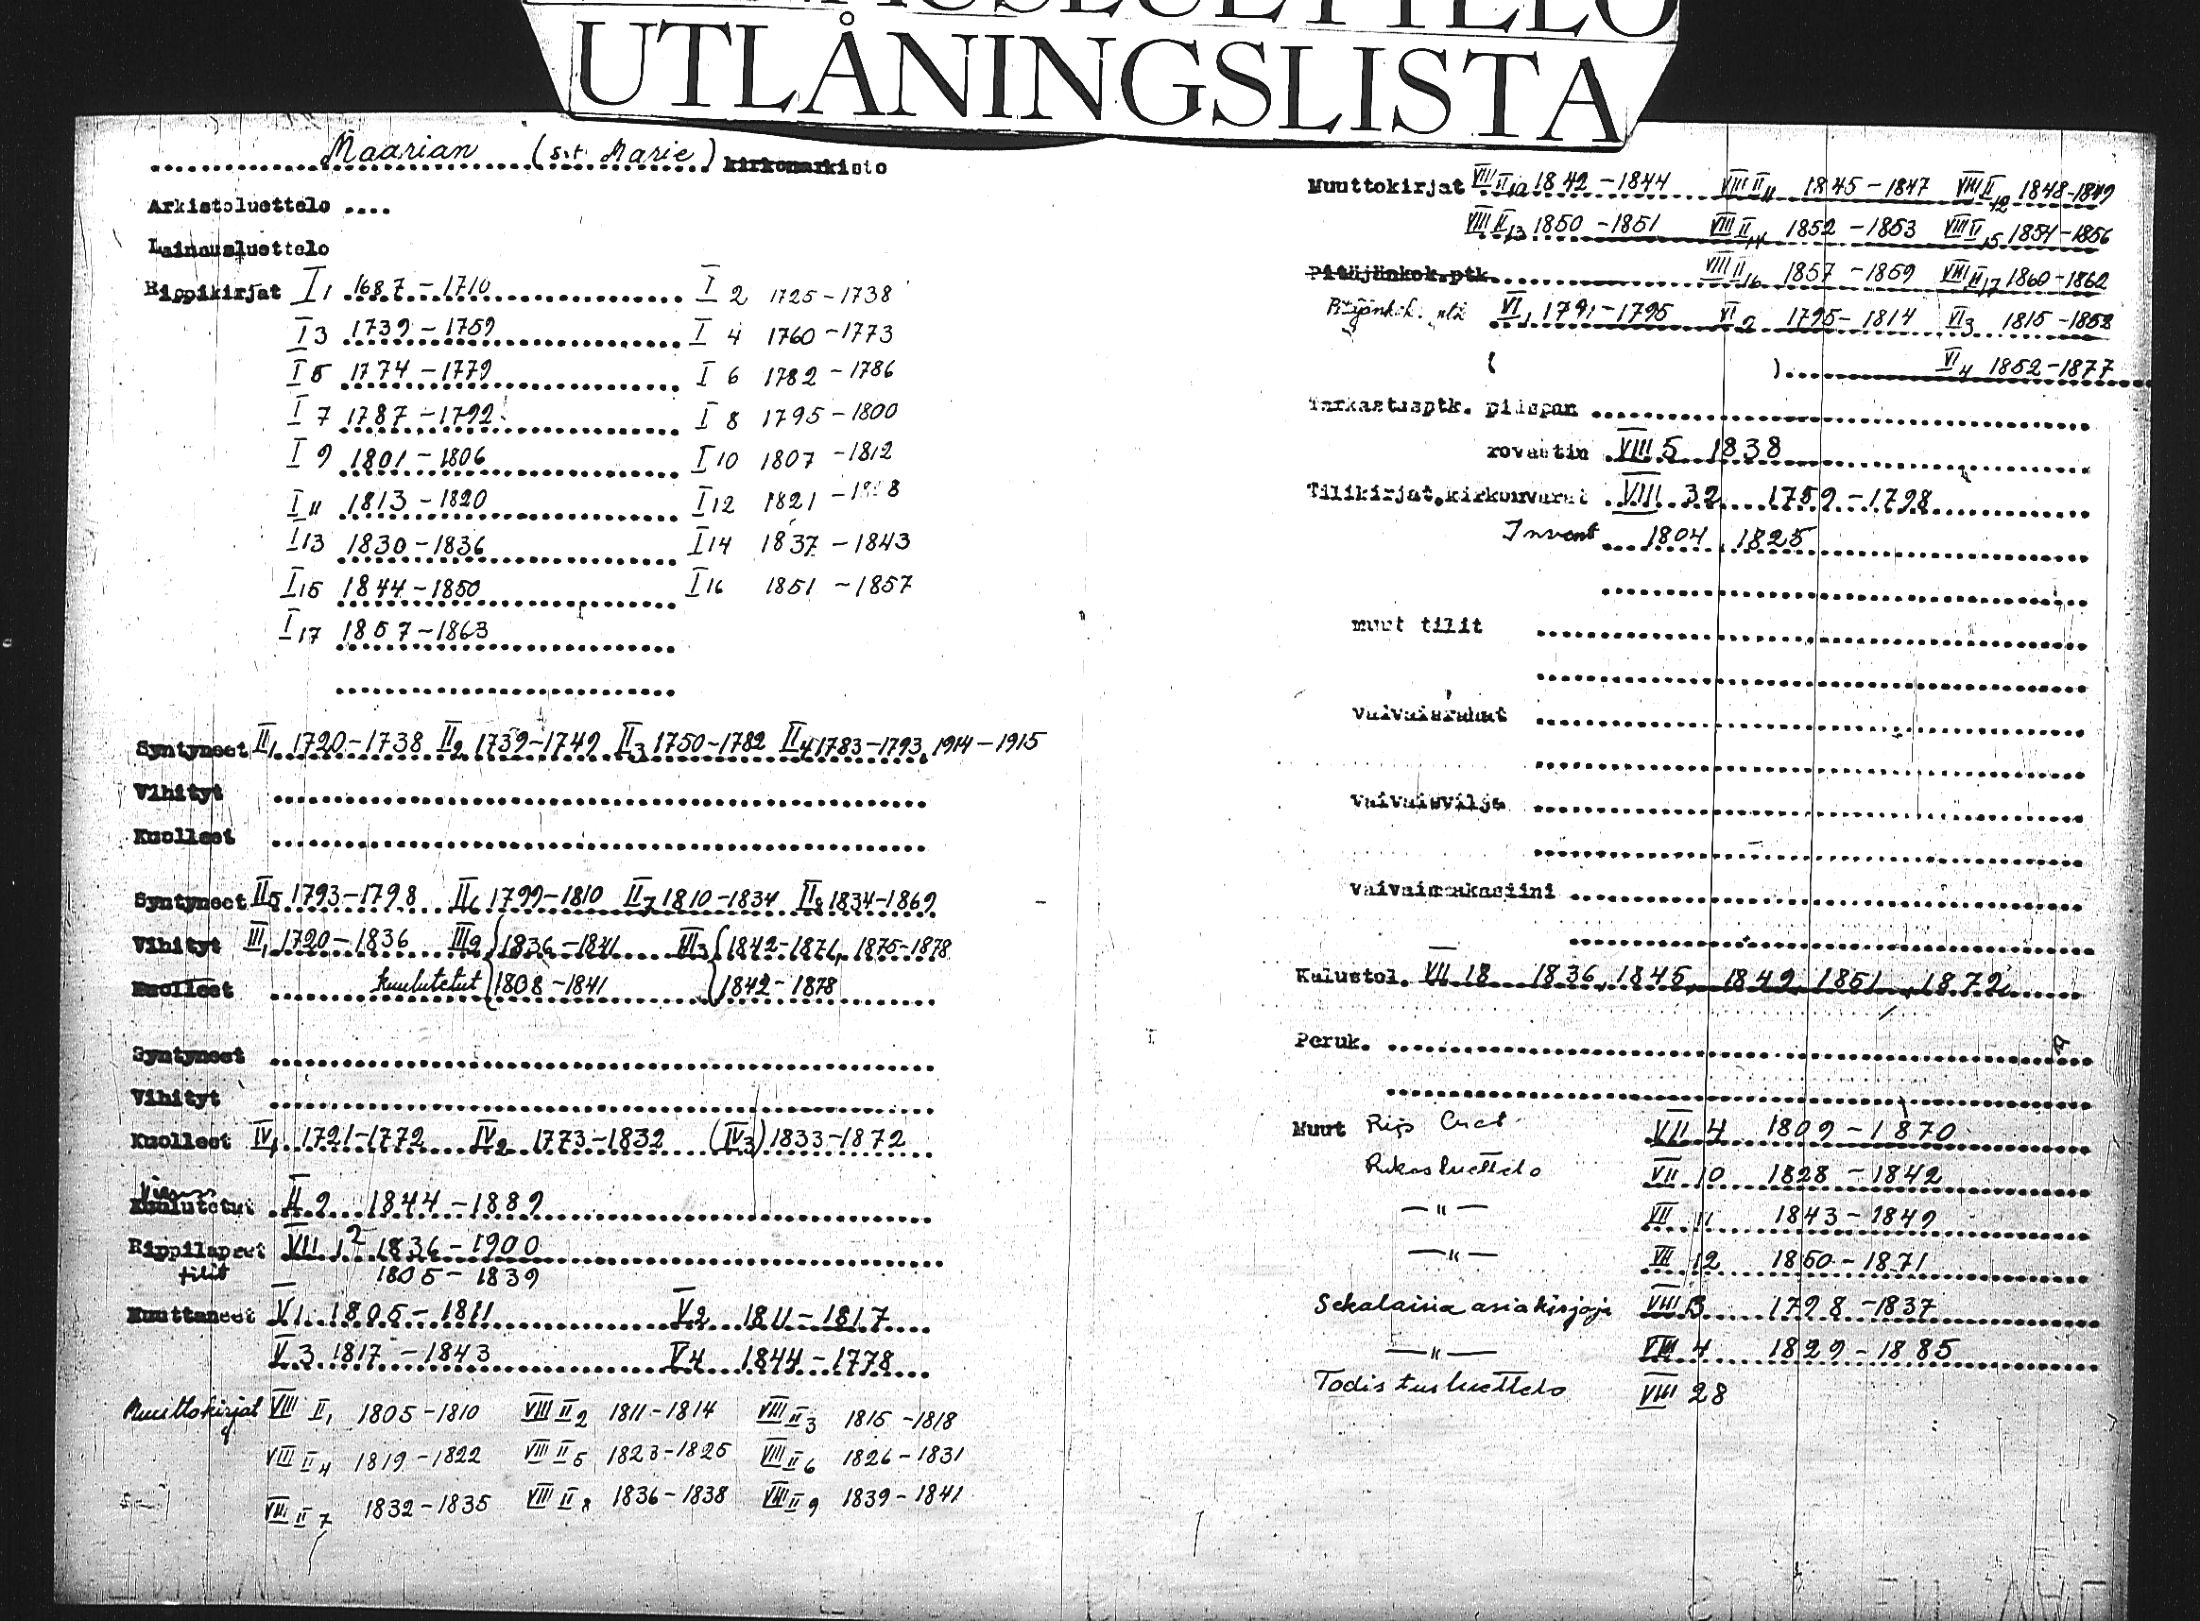 UTLÅNINGSLISTA
Maarian (S:t Marie) kirkonarkisto
Arkistoluettelo ....
Lainausluettelo
Rippikirjat I 1 1687-1710 I 2 1725-1738
I 3 1739-1759 I 4 1760-1773
I 5 1774-1779 I 6 1782-1786
I 7 1787-1792 I 8 1795-1800
I 9 1801-1806 I 10 1807-1812
I 11 1813-1820 I 12 1821-
I 13 1830-1836 I 14 1837-1843
I 15 1844-1850 I 16 1851-1857
I 17 1857-1863
Syntyneet II 1 1720-1738 II 2 1739-1749 II 3 1750-1782 II 4 1783-1793, 1914-1915
Vihityt
Kuolleet
Syntyneet II 5 1793-1798 II 6 1799-1810 II 7 1810-1834 II 8 1834-1869
Vihityt III 1 1720-1836 III 2 { 1836-1841 III 3 { 1842-1871, 1875-1878
Kuolleet Kuulutetut { 1808-1841 { 1842-1878
Syntyneet
Vihityt
Kuolleet IV 1 1721-1772 IV 2 1773-1832 (IV 3) 1833-1872
Kuulutetut II 9 1844-1889
Rippilapset VII 1 2 1836-1900
tilit 1805-1839
Muuttaneet V 1 1805-1811 V 2 1811-1817
V 3 1817-1843 V 4 1844-1778
Muuttokirjat VIII II 1 1805-1810 VIII II 2 1811-1814 VIII II 3 1815-1818
VIII II 4 1819-1822 VIII II 5 1823-1825 VIII II 6 1826-1831
VIII II 7 1832-1835 VIII II 8 1836-1838 VIII II 9 1839-1841
Muuttokirjat VIII II 10 1842-1844 VIII II 11 1845-1847 VIII II 12 1848-1849
VIII II 13 1850-1851 VIII II 14 1852-1853 VIII II 15 1854-1856
Pitäjänkok.ptk. VIII II 16 1857-1859 VIII II 17 1860-1862
Pitäjänkok. ptk VI 1 1791-1795 VI 2 1795-1814 VI 3 1815-1852
( ) VI 4 1852-1877
Tarkastusptk. piispan
rovastin VIII 5 1838
Tilikirjat, kirkonvarat VIII 32 1759-1798
Invent 1804, 1825
muut tilit
vaivaisrahat
vaivaisvilja
vaivaismakasiini
Kalustol. VII 18 1836, 1845, 1849, 1851, 1872
Peruk.
Muut VII 4 1809-1870
Rikosluettelo VII 10 1828-1842
—"— VII 11 1843-1849
—"— VII 12 1850-1871
Sekalaisia asiakirjoja VIII 3 1798-1837
—"— VIII 4 1829-1885
Todistusluettelo VIII 28